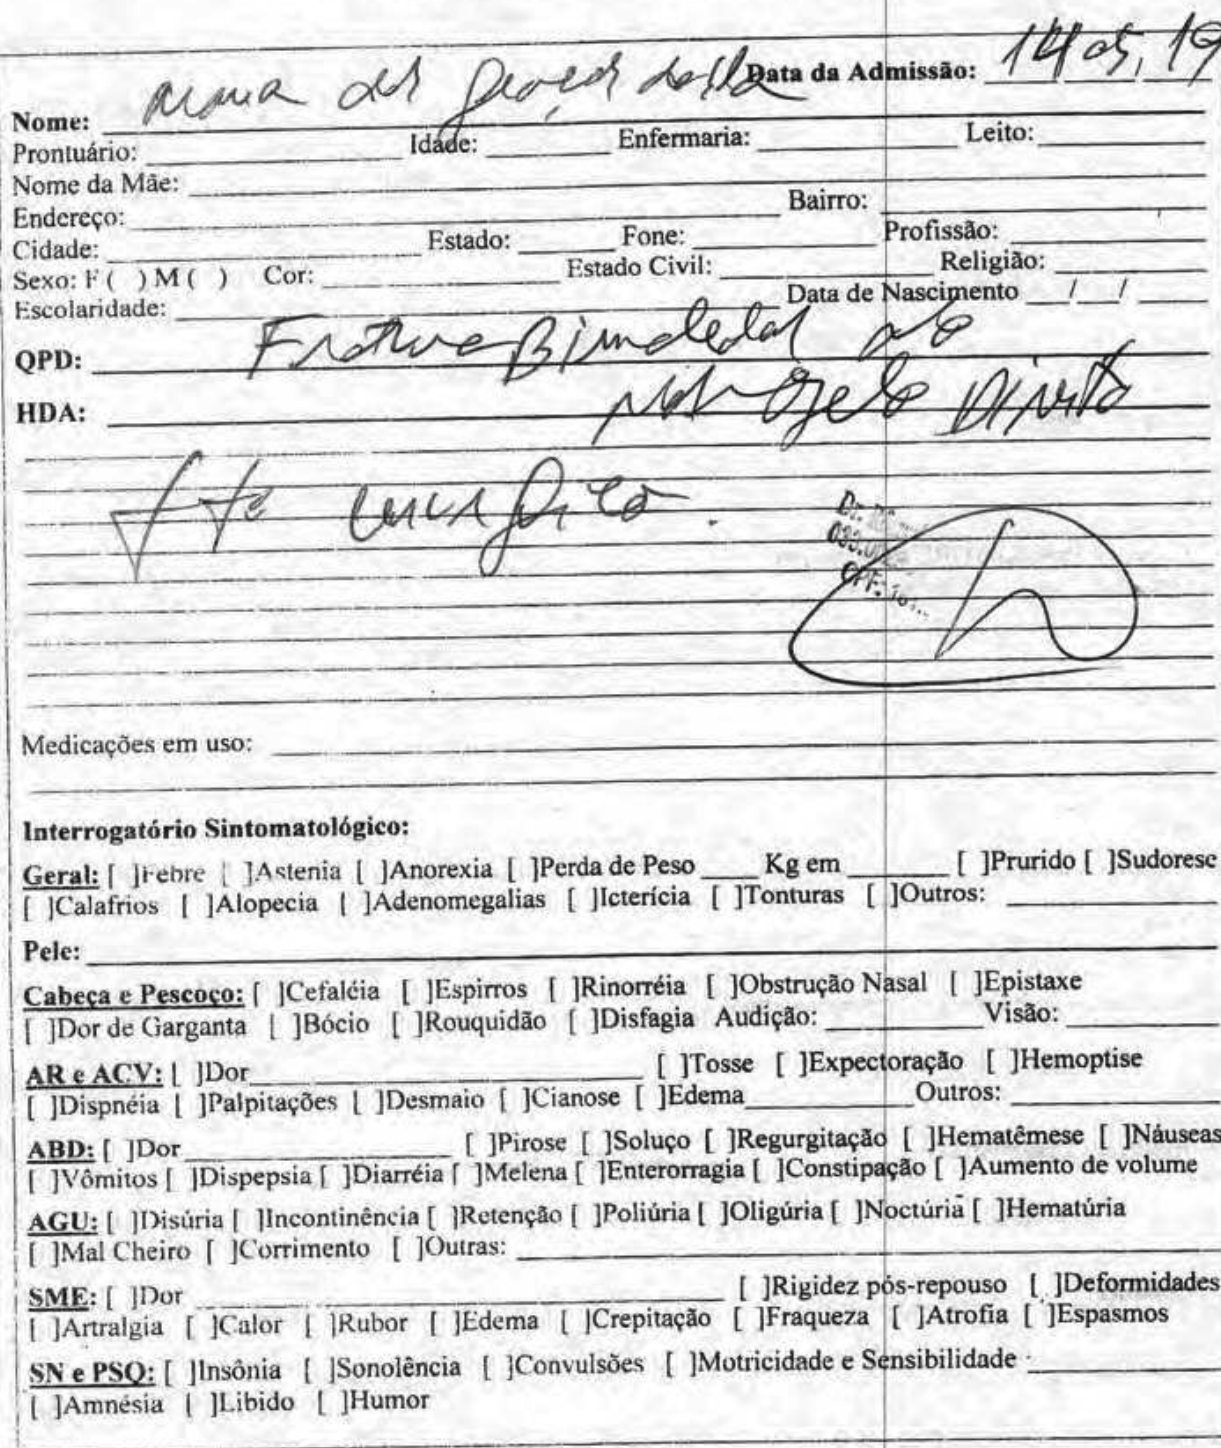 Data da Admissão: 14/05/19
Nome: Maria das Graças da Silva
Prontuário: Idade: Enfermaria: Leito:
Nome da Mãe:
Endereço: Bairro:
Cidade: Estado: Fone: Profissão:
Sexo: F ( ) M ( ) Cor: Estado Civil: Religião:
Escolaridade: Data de Nascimento / /
QPD: Fratura Bimaleolar do
HDA: tornozelo Direito
tto cirurgico.
Dr.
CPF:
Medicações em uso:
Interrogatório Sintomatológico:
Geral: [ ]Febre [ ]Astenia [ ]Anorexia [ ]Perda de Peso ____ Kg em ____ [ ]Prurido [ ]Sudorese
[ ]Calafrios [ ]Alopecia [ ]Adenomegalias [ ]Icterícia [ ]Tonturas [ ]Outros:
Pele:
Cabeça e Pescoço: [ ]Cefaléia [ ]Espirros [ ]Rinorréia [ ]Obstrução Nasal [ ]Epistaxe
[ ]Dor de Garganta [ ]Bócio [ ]Rouquidão [ ]Disfagia Audição: Visão:
AR e ACV: [ ]Dor [ ]Tosse [ ]Expectoração [ ]Hemoptise
[ ]Dispnéia [ ]Palpitações [ ]Desmaio [ ]Cianose [ ]Edema Outros:
ABD: [ ]Dor [ ]Pirose [ ]Soluço [ ]Regurgitação [ ]Hematêmese [ ]Náuseas
[ ]Vômitos [ ]Dispepsia [ ]Diarréia [ ]Melena [ ]Enterorragia [ ]Constipação [ ]Aumento de volume
AGU: [ ]Disúria [ ]Incontinência [ ]Retenção [ ]Poliúria [ ]Oligúria [ ]Noctúria [ ]Hematúria
[ ]Mal Cheiro [ ]Corrimento [ ]Outras:
SME: [ ]Dor [ ]Rigidez pós-repouso [ ]Deformidades
[ ]Artralgia [ ]Calor [ ]Rubor [ ]Edema [ ]Crepitação [ ]Fraqueza [ ]Atrofia [ ]Espasmos
SN e PSQ: [ ]Insônia [ ]Sonolência [ ]Convulsões [ ]Motricidade e Sensibilidade
[ ]Amnésia [ ]Libido [ ]Humor